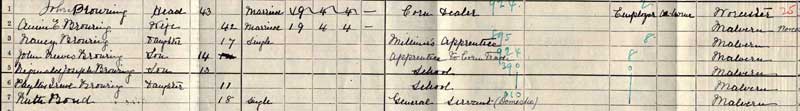 1 John Browning Head 43 Married 19 4 4 — Corn Dealer 924 Employer Worcester 25
2 Annie E. Browning Wife 42 Married 19 4 4 Malvern
3 Nancy Browning Daughter 17 Single Milliner's Apprentice 695 8 Malvern
4 John Lewis Browning Son 14 Apprentice to Corn Trade 924 8 Malvern
5 Reginald Joseph Browning Son 13 School 390 0 Malvern
6 Phyllis Irene Browning Daughter 11 School Malvern
7 Ruth Proud 18 Single General Servant (Domestic) 010 Malvern